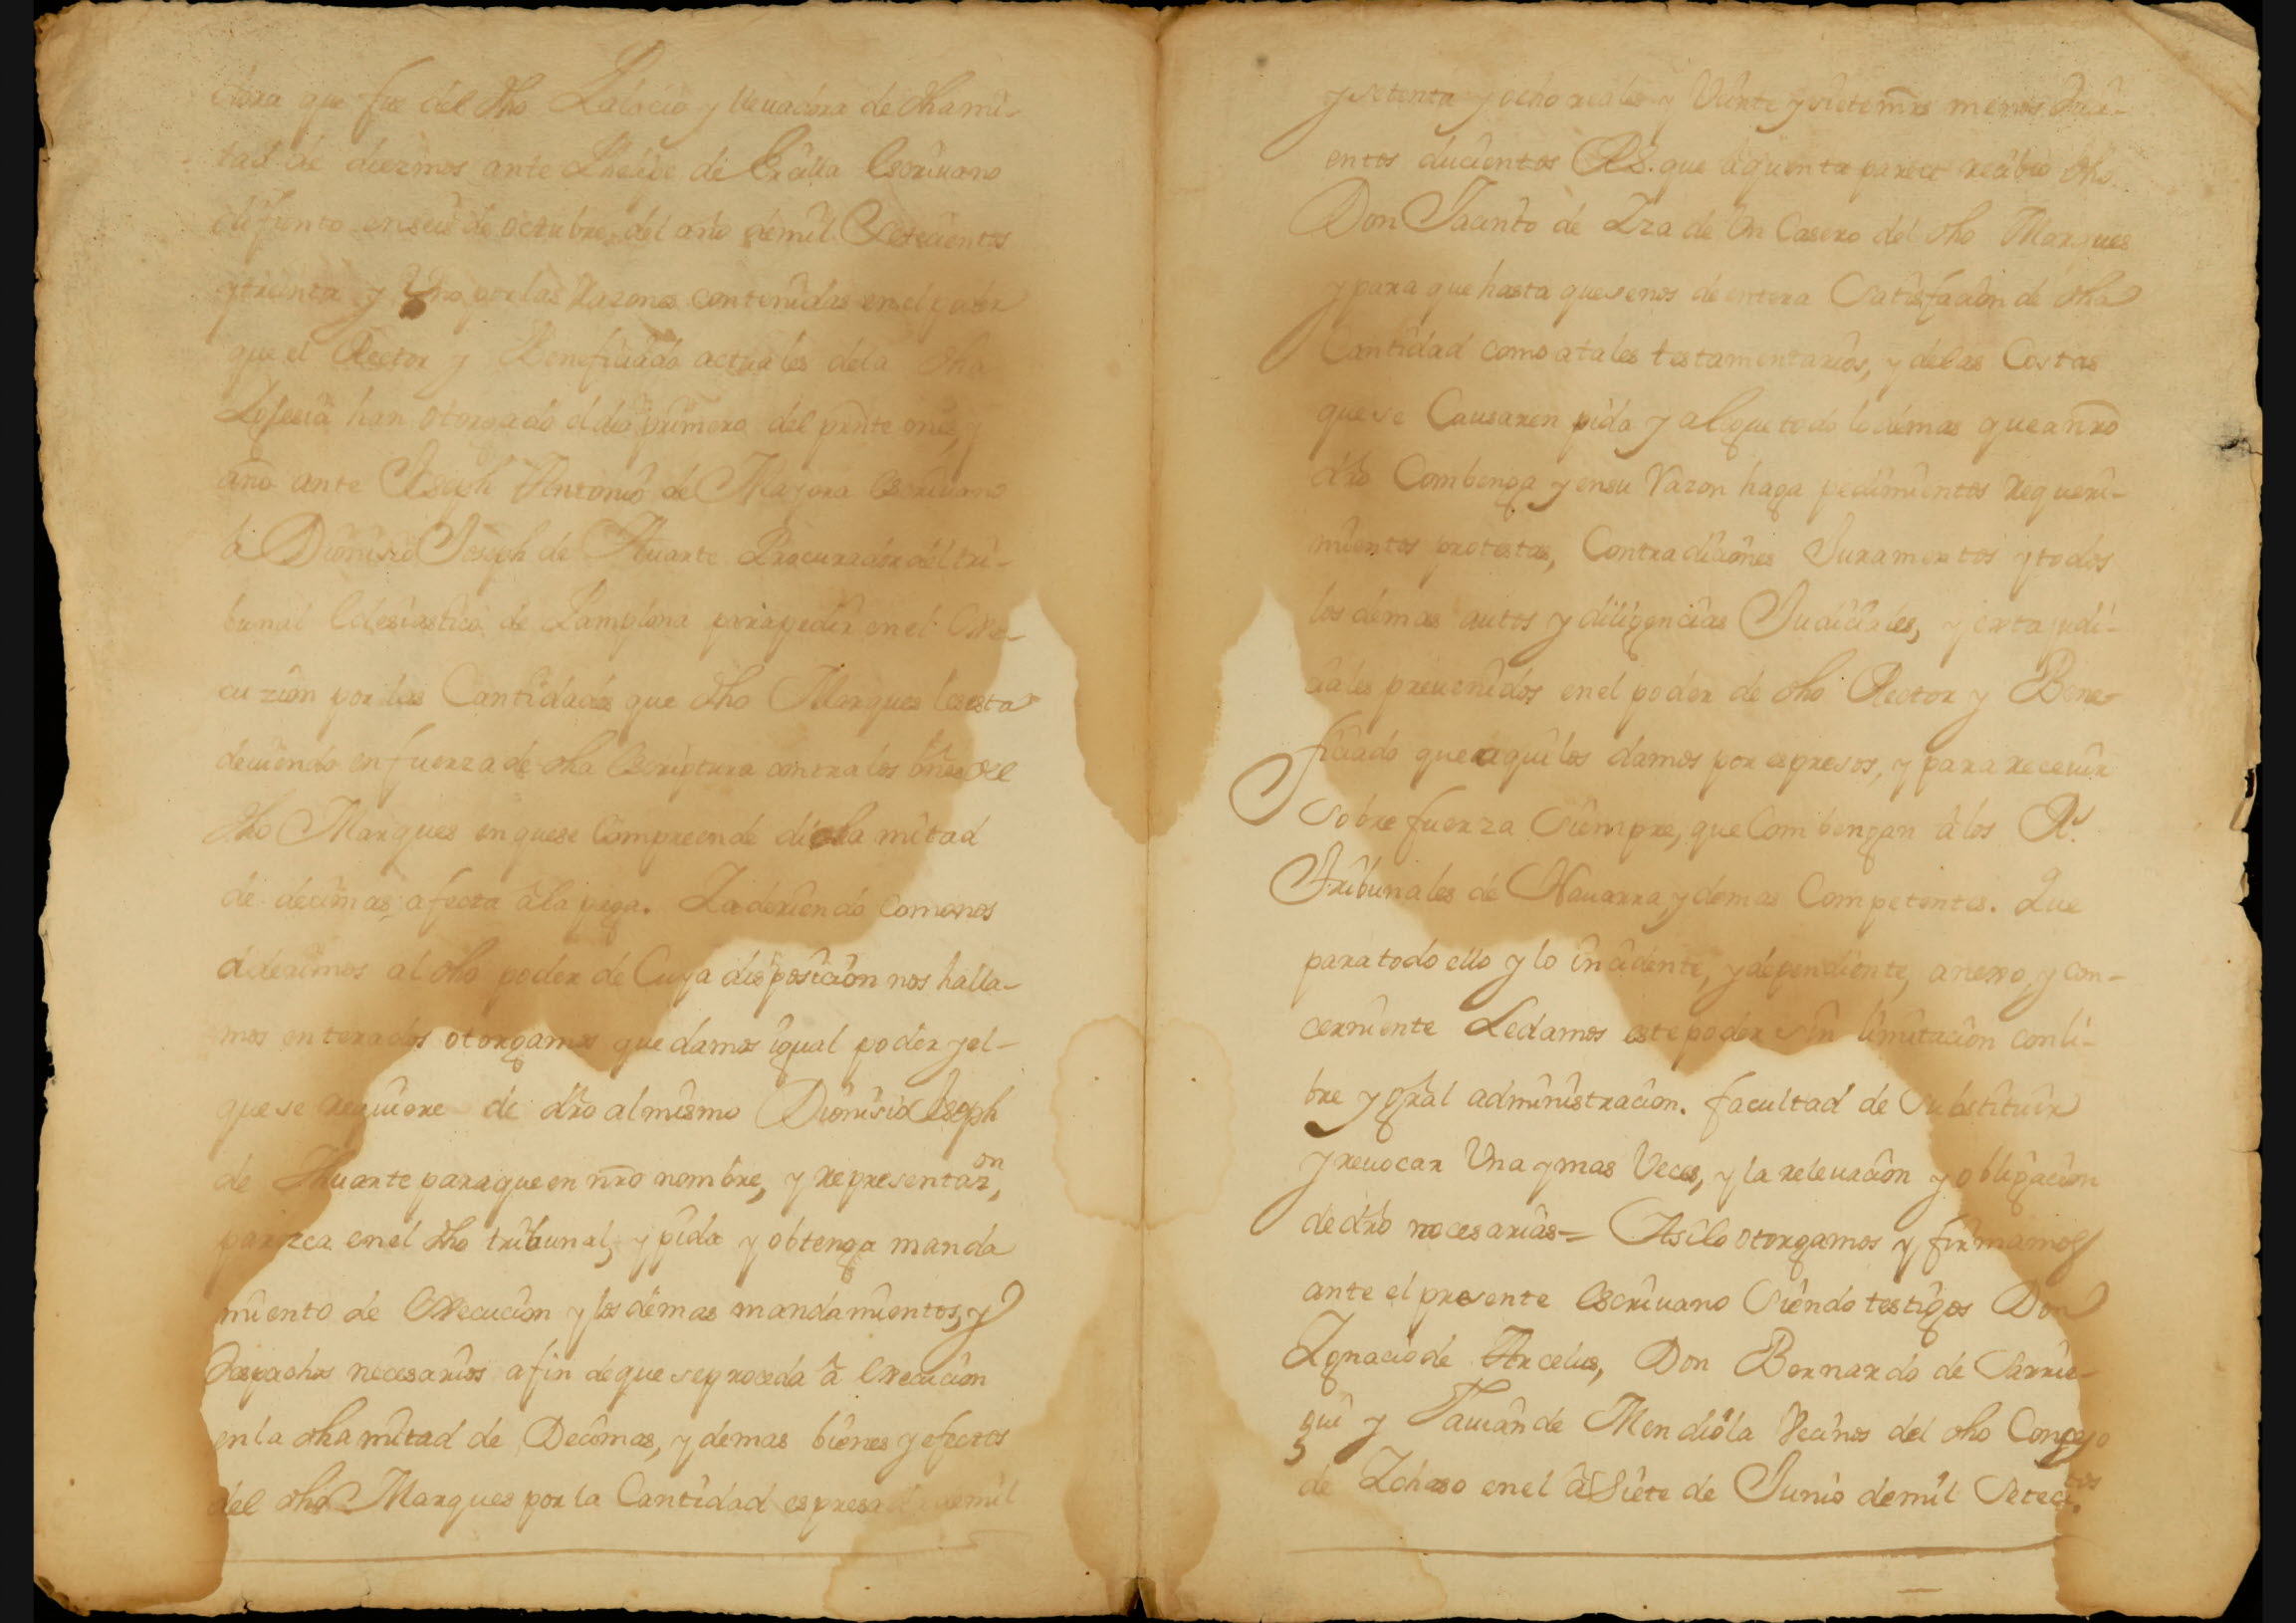 dora que fue del dho Palacio y lleuadora de dha mi-
tad de diezmos ante Phelipe de Escriuano
difunto en seis de octubre del año de mil Setecientos
y treinta y Uno por las Razones contenidas en el poder
que el Rector y Beneficiado actuales de la dha
Iglesia han otorgado el dia primero del prnte mes, y
año ante Joseph Antonio de Mayora Escriuano
â Dionisio Joseph de Huarte Procurador del tri-
bunal Eclesiastico de Pamplona para pedir en el Exe-
cuzion por las Cantidades que dho Marques les esta
deuiendo en fuerza de dha Escriptura contra los bnes del
dho Marques en que se Compreende dicha mitad
de decimas, afecta â la paga. Y adiriendo como nos
aderimos al dho poder de Cuya disposicion nos halla-
mos enterados otorgamos que damos igual poder y el-
que se requiere de dro al mismo Dionisio Joseph
de Huarte para que en nro nombre, y representaz.on,
parezca en el dho tribunal, y pida y obtenga manda
miento de Execucion y los demas mandamientos, y
despachos necesarios a fin de que se proceda â Execucion
en la dha mitad de Decimas, y demas bienes y efectos
del dho Marques por la Cantidad espresada de mil
y setenta y ocho reales y Veinte y siete mrs menos
entos ducientos Rs. que â quenta parece reciuio dho
Don Jacinto de Yza de Un Casero del dho Marques
y para que hasta que se nos de entera Satisfacion de dha
Cantidad como a tales testamentarios, y de las Costas
que se Causaren pida y alegue todo lo demas que a nro
dro Combenga y en su Razon haga pedimientos Requeri-
mientos protestas, Contradiciones Juramentos y todos
los demas autos y diligencias Judiciales, y extajudi-
ciales preuenidos en el poder de dho Rector y Bene-
ficiado que aqui los damos por espresos, y para receuir
Sobre fuerza Siempre, que Combengan â los Rs.
Tribunales de Nauarra, y demas Competentes. Que
para todo ello y lo incidente, y dependiente, anexo, y con-
cerniente Le damos este poder sin limitacion con li-
bre y gral administracion. facultad de Substituir
y reuocar Una y mas Veces, y la releuacion y obligacion
de dro necesarias= Asi lo otorgamos y firmamos
ante el presente Escriuano Siendo testigos Don
Ignacio de Arcelus, Don Bernardo de Sarrie-
gui y Xauier de Mendiola Vecinos del dho Concejo
de Ichaso en el â Siete de Junio de mil Seteci.tos